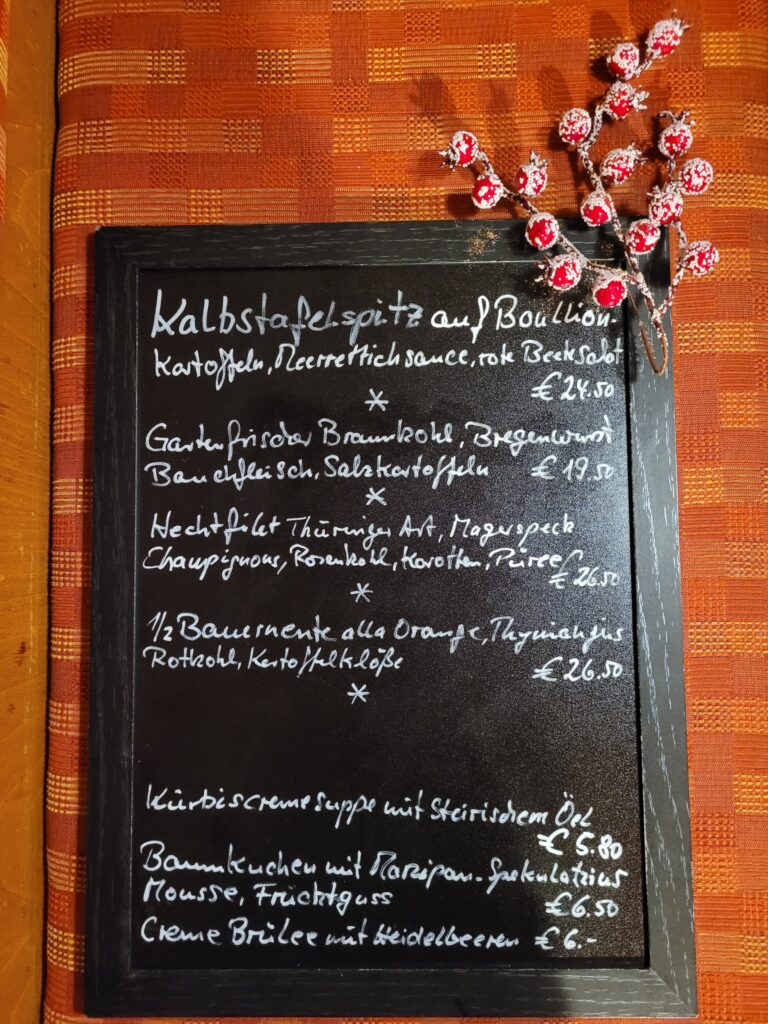 Kalbstafelspitz auf Bouillon-
Kartoffeln, Meerrettichsauce, rote Beete Salat
€ 24.50
*
Gartenfrischer Braunkohl, Bregenwurst
Bauchfleisch, Salzkartoffeln € 19.50
*
Hechtfilet Thüringer Art, Magerspeck
Champignons, Rosenkohl, Karotten, Püree € 26.50
*
1/2 Bauernente alla Orange, Thymianjus
Rotkohl, Kartoffelklöße € 26.50
*
Kürbiscremesuppe mit Steirischem Öel
€ 5.80
Baumkuchen mit Marzipan-Spekulatius
Mousse, Früchtguss € 6.50
Creme Brûlee mit Heidelbeeren € 6.-